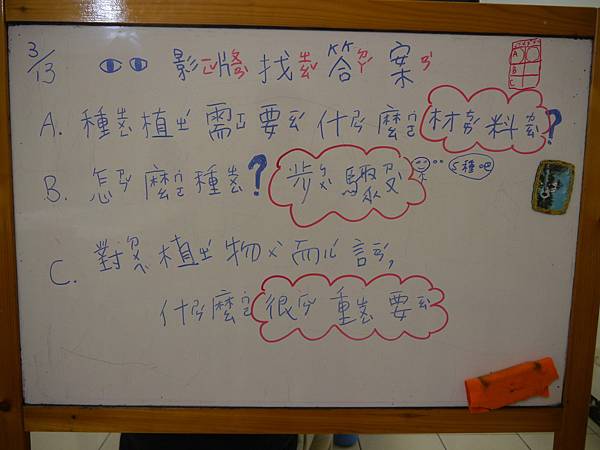 3/13 影 找答案
A
B
C
A. 種植需要什麼材料?
B. 怎麼種? 步驟 5種吧
C. 對植物而言,
什麼很重要